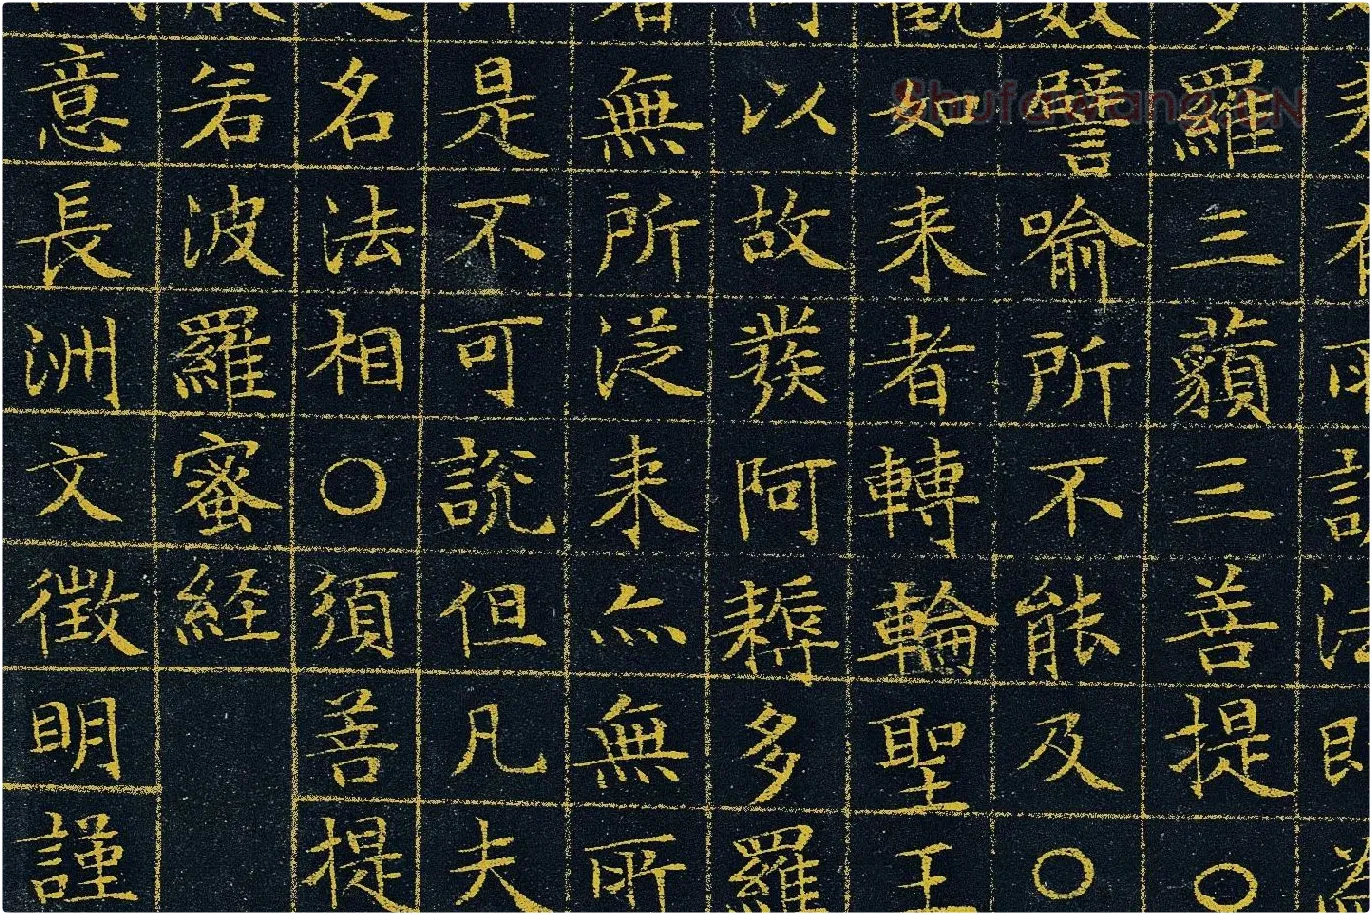 羅三藐三菩提○
譬喻所不能及○
如来者轉輪聖王
以故發阿耨多羅
無所從来亦無所
是不可說但凡夫
名法相○須菩提
若波羅蜜経
意長洲文徵明謹
Shufawang.CN